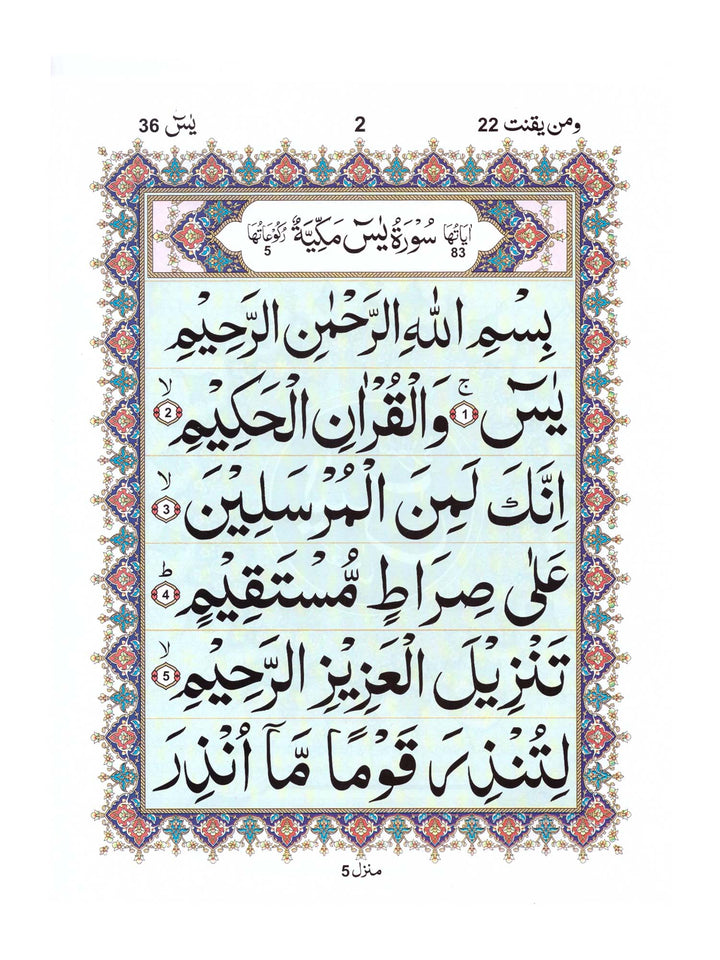 ومن یقنت 22 2 یٰسٓ 36
اٰیَاتُهَا 83 سُوْرَةُ یٰسٓ مَكِّیَّةٌ رُكُوْعَاتُهَا 5
بِسْمِ اللهِ الرَّحْمٰنِ الرَّحِیْمِ
یٰسٓ ۚ 1 وَالْقُرْاٰنِ الْحَكِیْمِ ۙ 2
اِنَّكَ لَمِنَ الْمُرْسَلِیْنَ ۙ 3
عَلٰی صِرَاطٍ مُّسْتَقِیْمٍ ؕ 4
تَنْزِیْلَ الْعَزِیْزِ الرَّحِیْمِ ۙ 5
لِتُنْذِرَ قَوْمًا مَّاۤ اُنْذِرَ
منزل 5